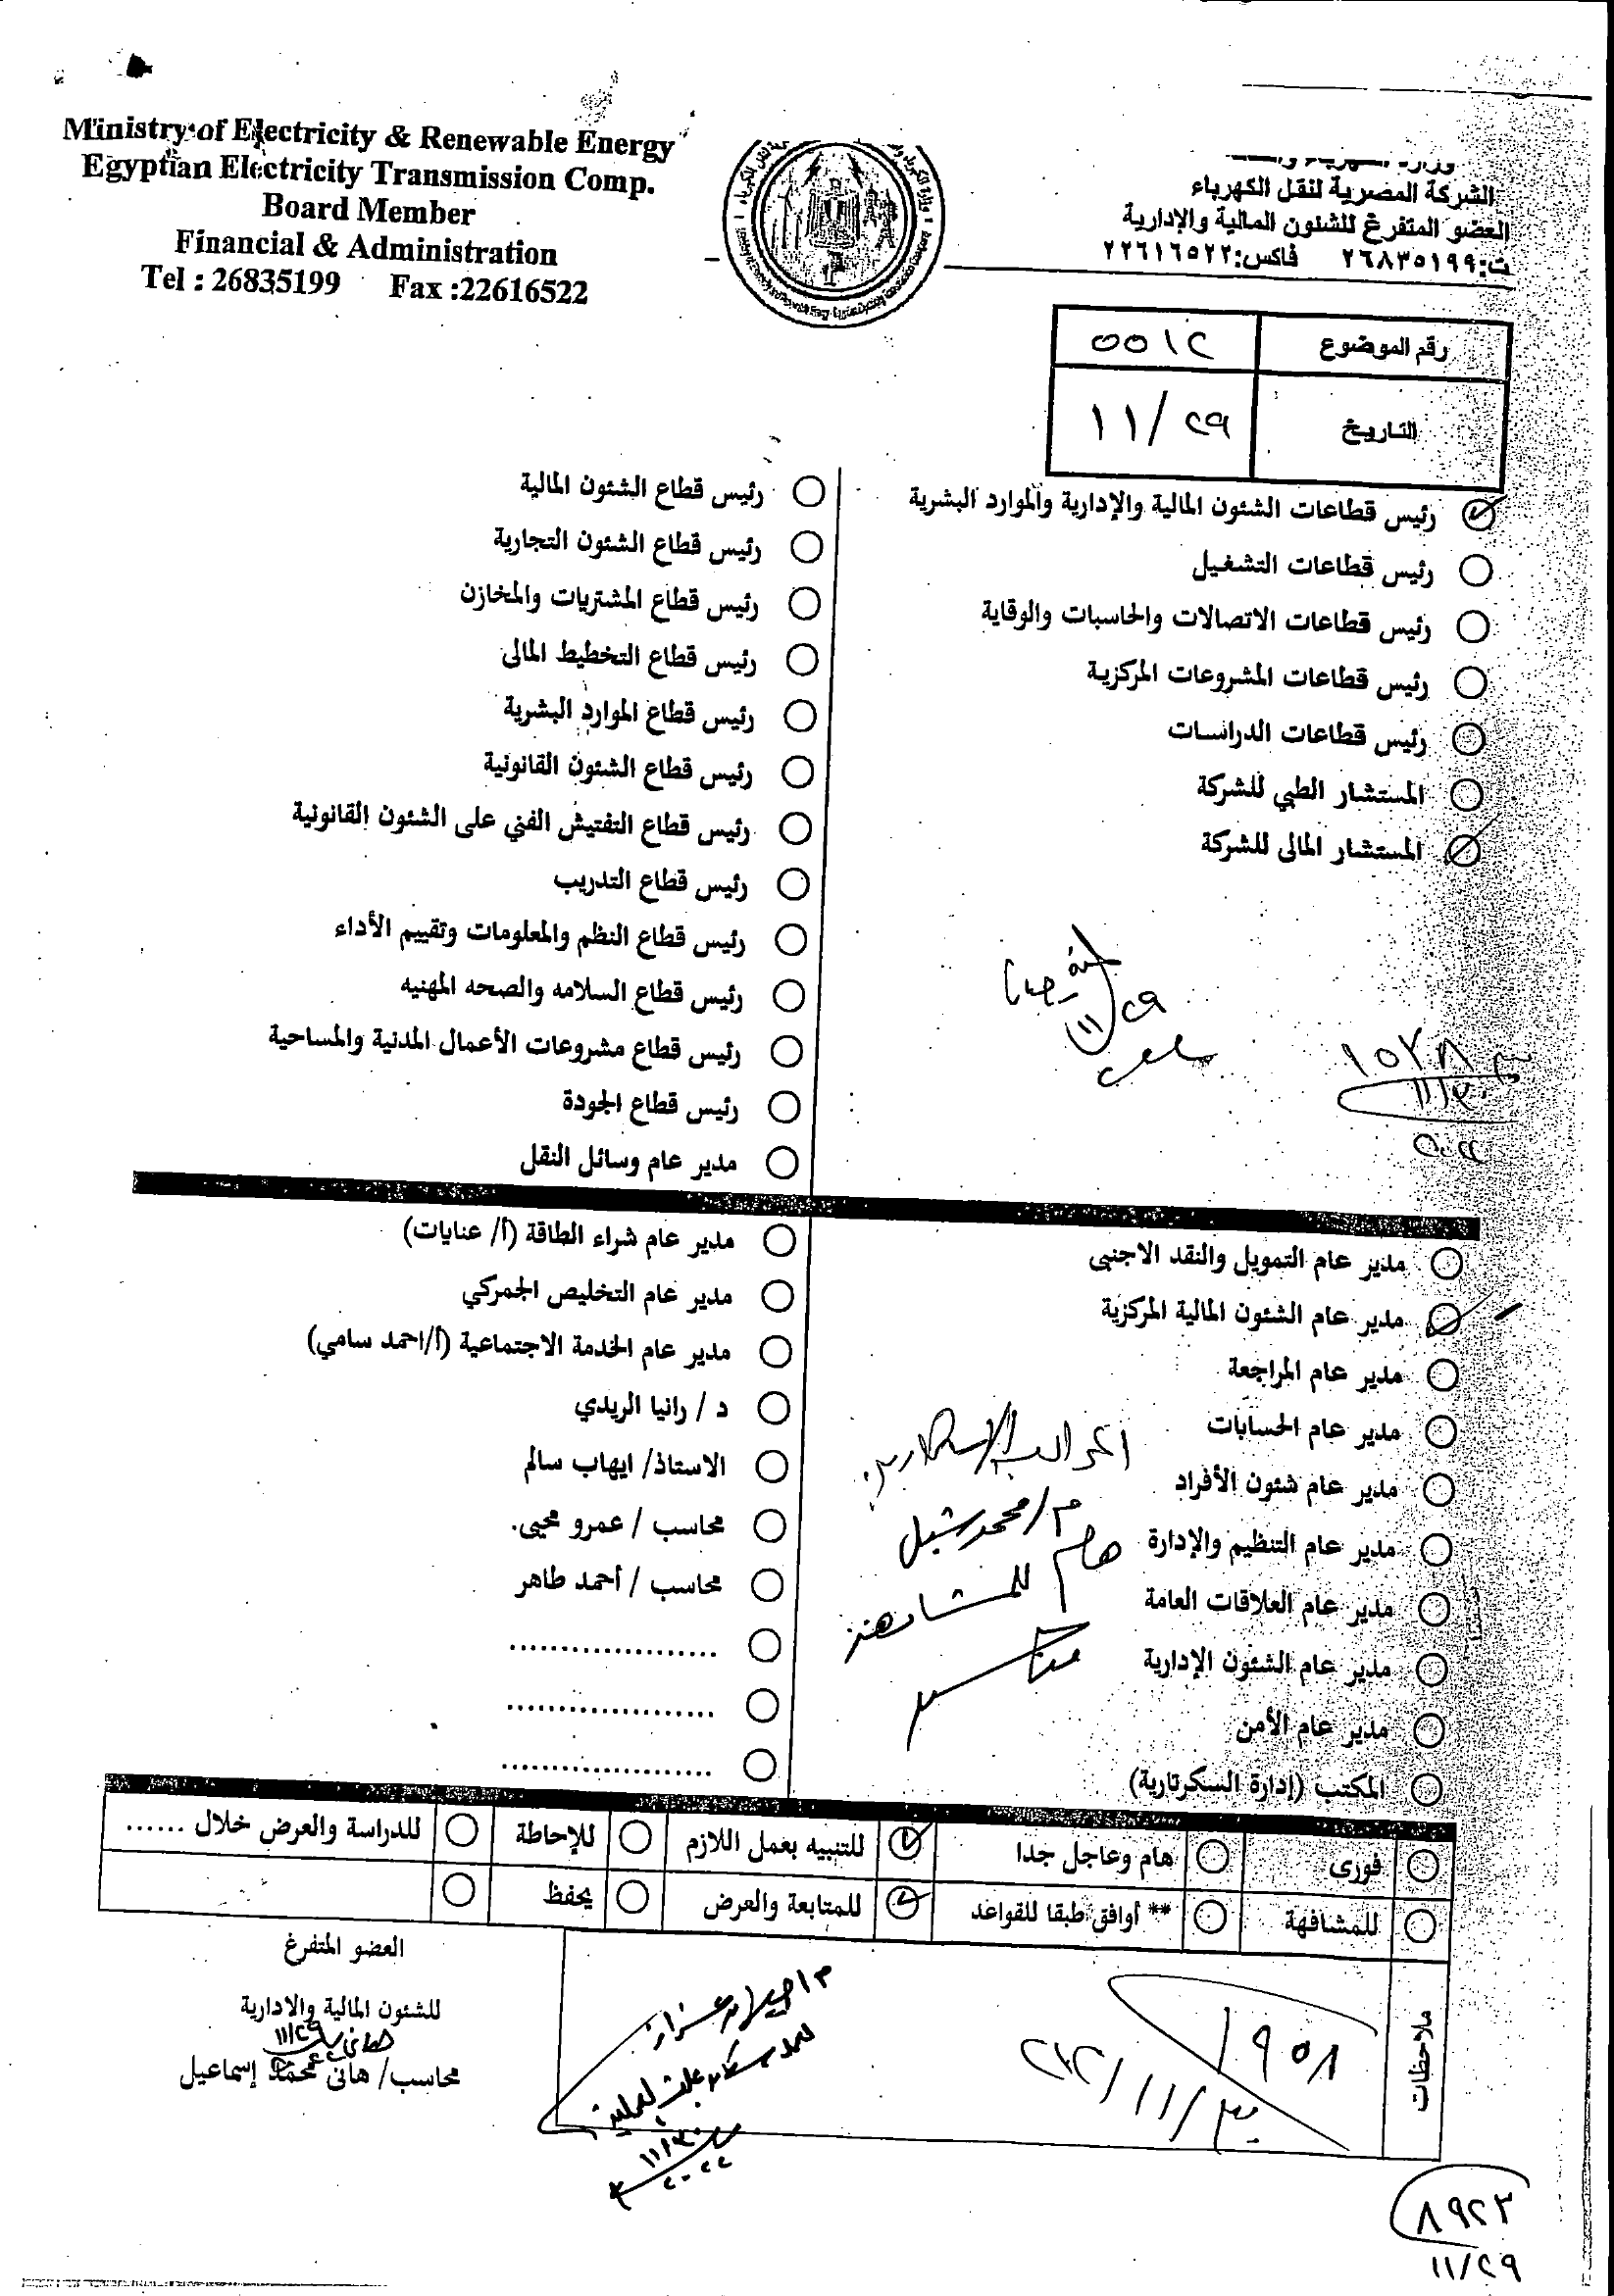 Ministry of Electricity & Renewable Energy
Egyptian Electricity Transmission Comp.
Board Member
Financial & Administration
Tel : 26835199 Fax :22616522
الشركة المصرية لنقل الكهرباء
العضو المتفرغ للشئون المالية والإدارية
ت:٢٦٨٣٥١٩٩ فاكس:٢٢٦١٦٥٢٢
رقم الموضوع ٥٥١٢
التاريخ ١١/٢٩
رئيس قطاعات الشئون المالية والإدارية والموارد البشرية
رئيس قطاعات التشغيل
رئيس قطاعات الاتصالات والحاسبات والوقاية
رئيس قطاعات المشروعات المركزية
رئيس قطاعات الدراسات
المستشار الطبي للشركة
المستشار المالى للشركة
٢٩
١١
١٥٢٨
رئيس قطاع الشئون المالية
رئيس قطاع الشئون التجارية
رئيس قطاع المشتريات والمخازن
رئيس قطاع التخطيط المالى
رئيس قطاع الموارد البشرية
رئيس قطاع الشئون القانونية
رئيس قطاع التفتيش الفني على الشئون القانونية
رئيس قطاع التدريب
رئيس قطاع النظم والمعلومات وتقييم الأداء
رئيس قطاع السلامه والصحه المهنيه
رئيس قطاع مشروعات الأعمال المدنية والمساحية
رئيس قطاع الجودة
مدير عام وسائل النقل
مدير عام التمويل والنقد الاجنبى
مدير عام الشئون المالية المركزية
مدير عام المراجعة
مدير عام الحسابات
مدير عام شئون الأفراد
مدير عام التنظيم والإدارة
مدير عام العلاقات العامة
مدير عام الشئون الإدارية
مدير عام الأمن
المكتب (إدارة السكرتارية)
م/محمد شبل
هام
مدير عام شراء الطاقة (أ/ عنايات)
مدير عام التخليص الجمركي
مدير عام الخدمة الاجتماعية (أ/احمد سامي)
د / رانيا الريدي
الاستاذ/ ايهاب سالم
محاسب / عمرو محيى.
محاسب / أحمد طاهر
....................
....................
....................
فورى هام وعاجل جدا للتنبيه بعمل اللازم للإحاطة للدراسة والعرض خلال ......
للمشافهة ** أوافق طبقا للقواعد للمتابعة والعرض يحفظ
ملاحظات
١٩٥٨
١١/٣٠
٢٠٢٢
العضو المتفرغ
للشئون المالية والادارية
١١/٢٩
محاسب/ هانى محمد إسماعيل
٨٩٢٣
١١/٢٩